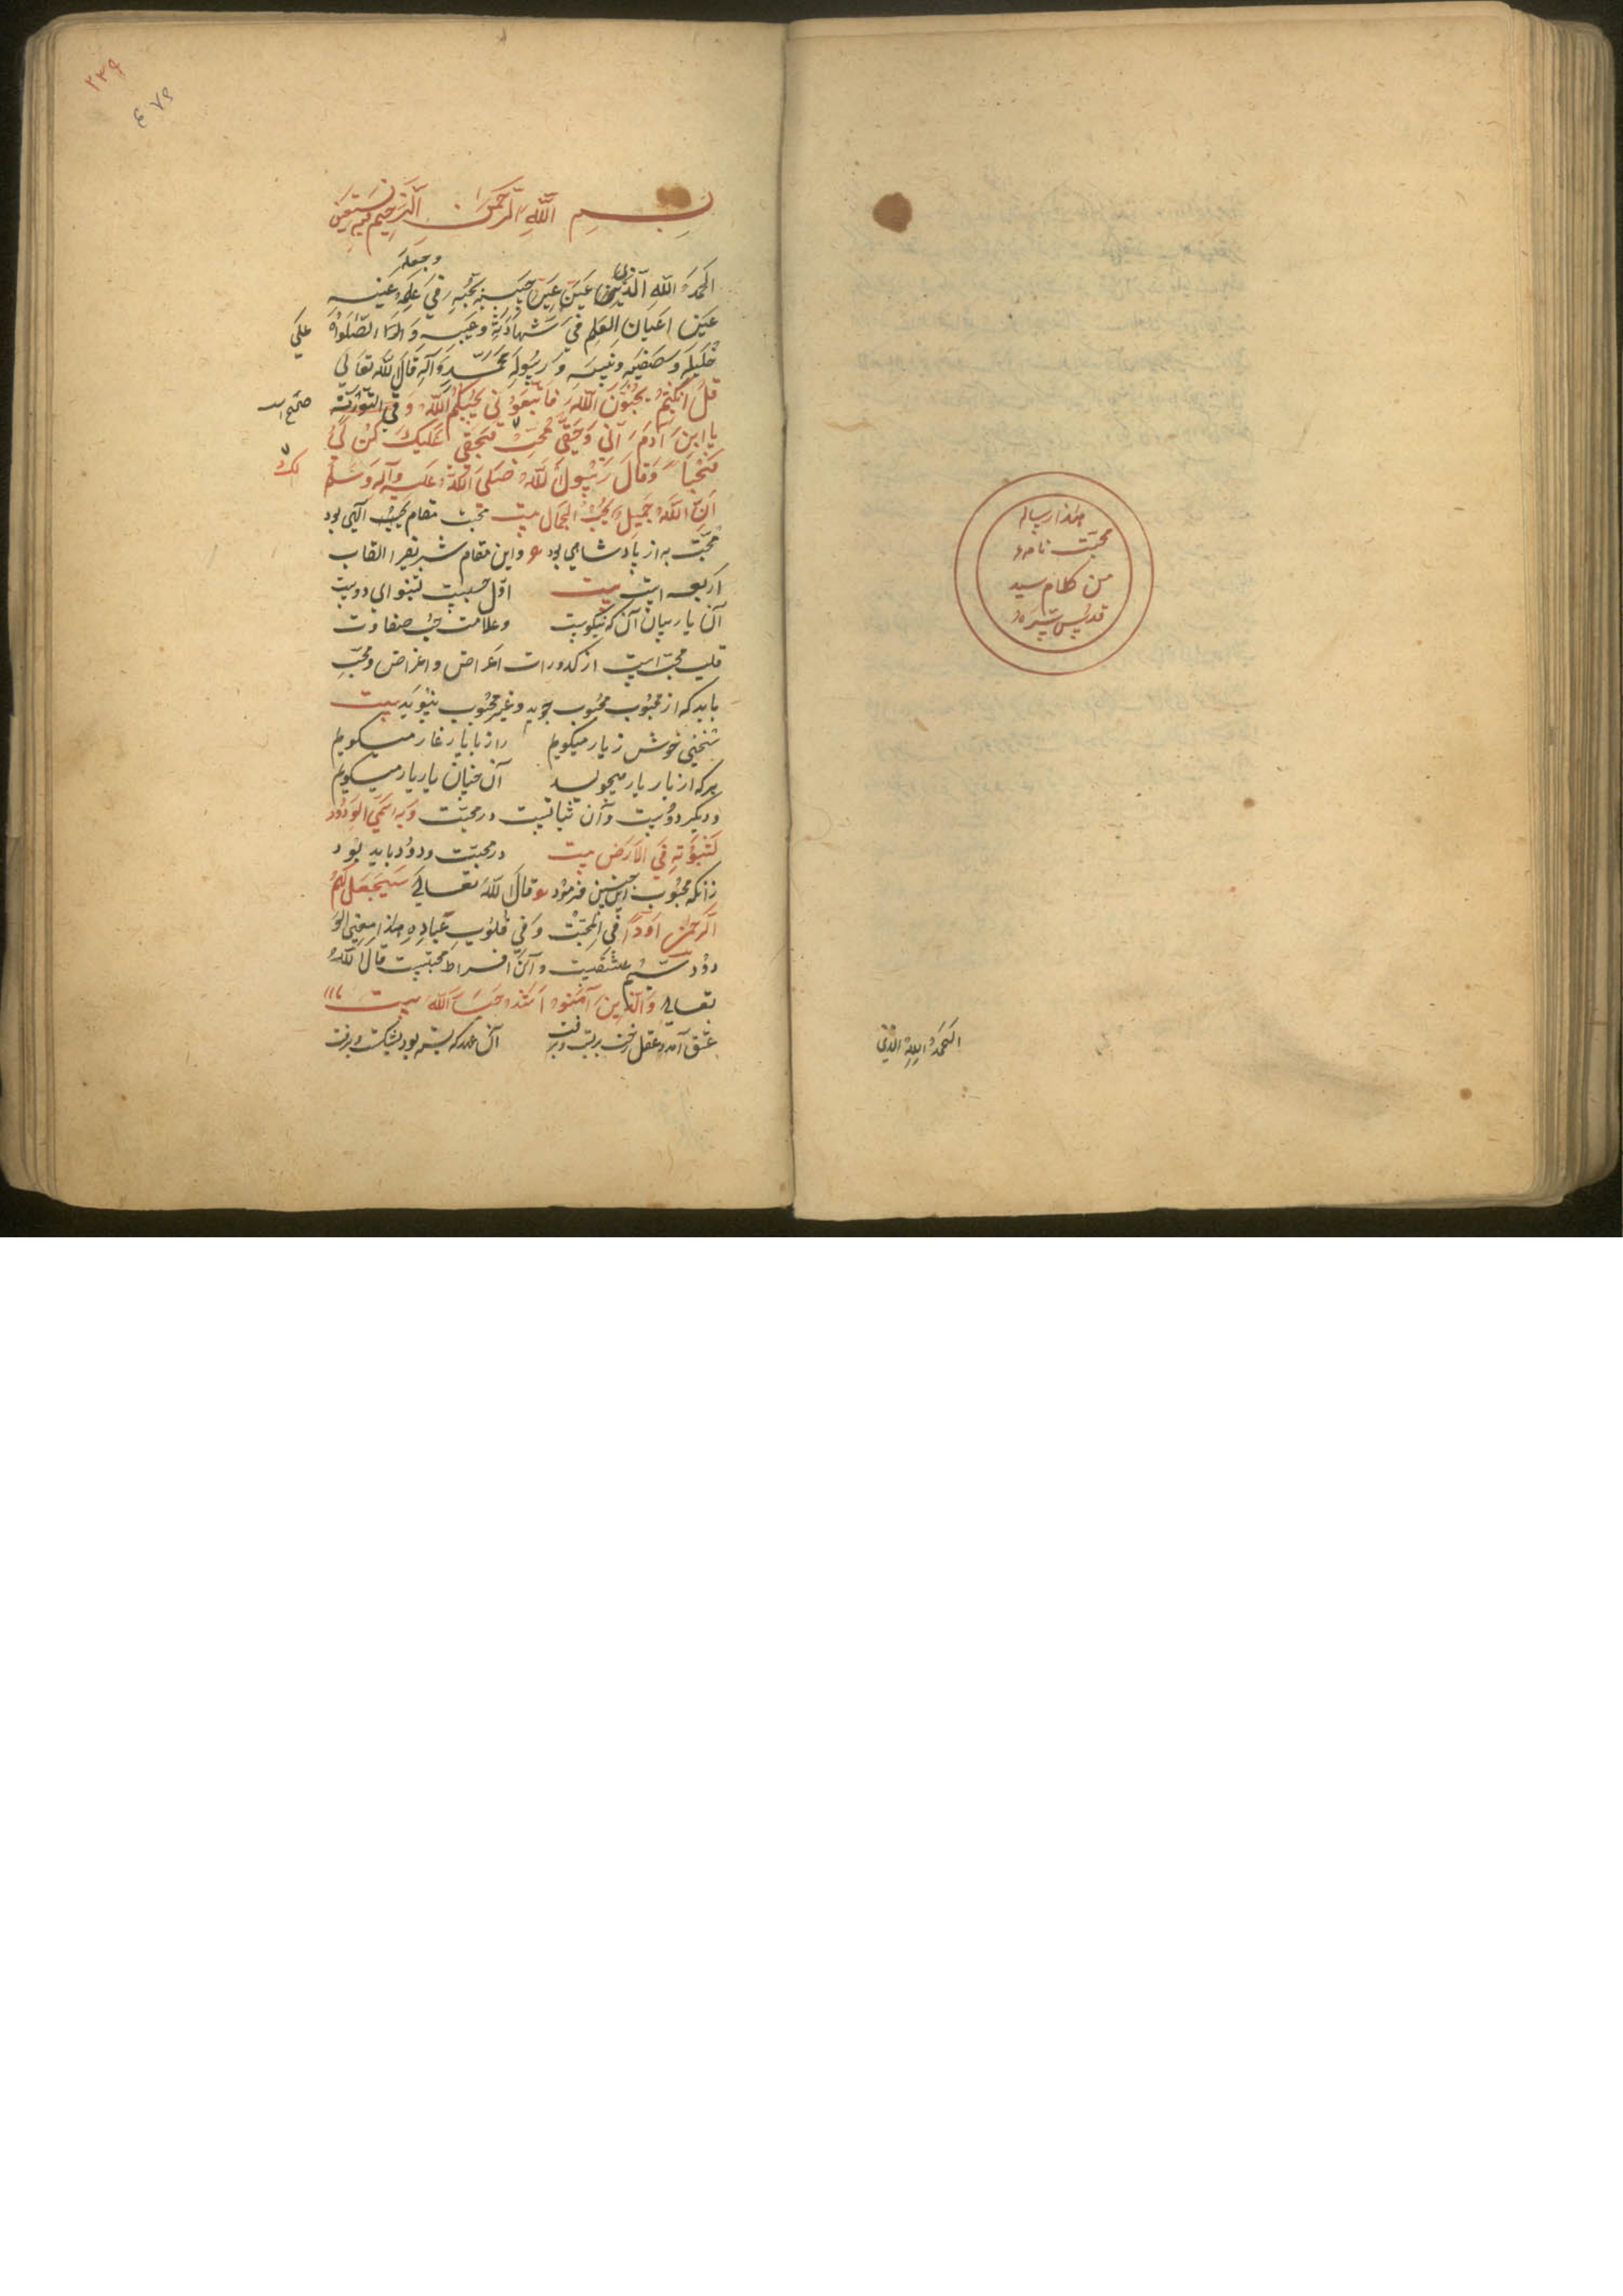 هذا رساله
محبّت نامه
من کلام سید
قدس سره
الحمد لله الذی
۲۳۹
بسم الله الرحمن الرحیم وبه نستعین
وجعله
الحمد لله الذی عین عین حبیبه بحبه فی علم عینه
عین اعیان العلم فی شهادته وغیبه والصلوة
علی
خلیله وصفیه ونبیه ورسوله محمد وآله قال الله تعالی
قل انکنتم تحبون الله فاتبعونی یحببکم الله وفی التوریة
یا ابن آدم انی وحقی محب فبحقی علیک کن لی
لک
محبا وقال رسول الله صلی الله علیه وآله وسلم
ان الله جمیل یحب الجمال بیت محبت مقام الهی بود
محبّت به از پادشاهی بود و این مقام شریف را القاب
اربعه است بیت اوّل حبیبت بشنو ای دوست
آن یار بیان آن که نیکوست وعلامت حب صفاوت
قلب محبّ است از کدورات اعراض و اغراض ومحبّ
باید که از محبوب محبوب جوید وغیر محبوب نپوید بیت
سخنی خوش ز یار میگویم راز با یار غار میگویم
هر که از یار یار میجوید آن یار یار میگویم
ودیگر ودّست وآن ثباتست در محبّت وبه اسمی الودود
لثبوته فی الارض بیت در محبّت ودود باید بود
زانکه محبوب این چنین فرمود قال الله تعالی سیجعل لهم
الرحمن ودّا فی المحبّت وفی قلوب عباده هذا معنی الو
دود سیّم عشقست وآن افراط محبّتست قال الله
تعالی والذین آمنوا اشد حبا لله بیت
عشق آمد وعقل رخت بربست وبرفت آن عهد که بسته بود بشکست وبرفت